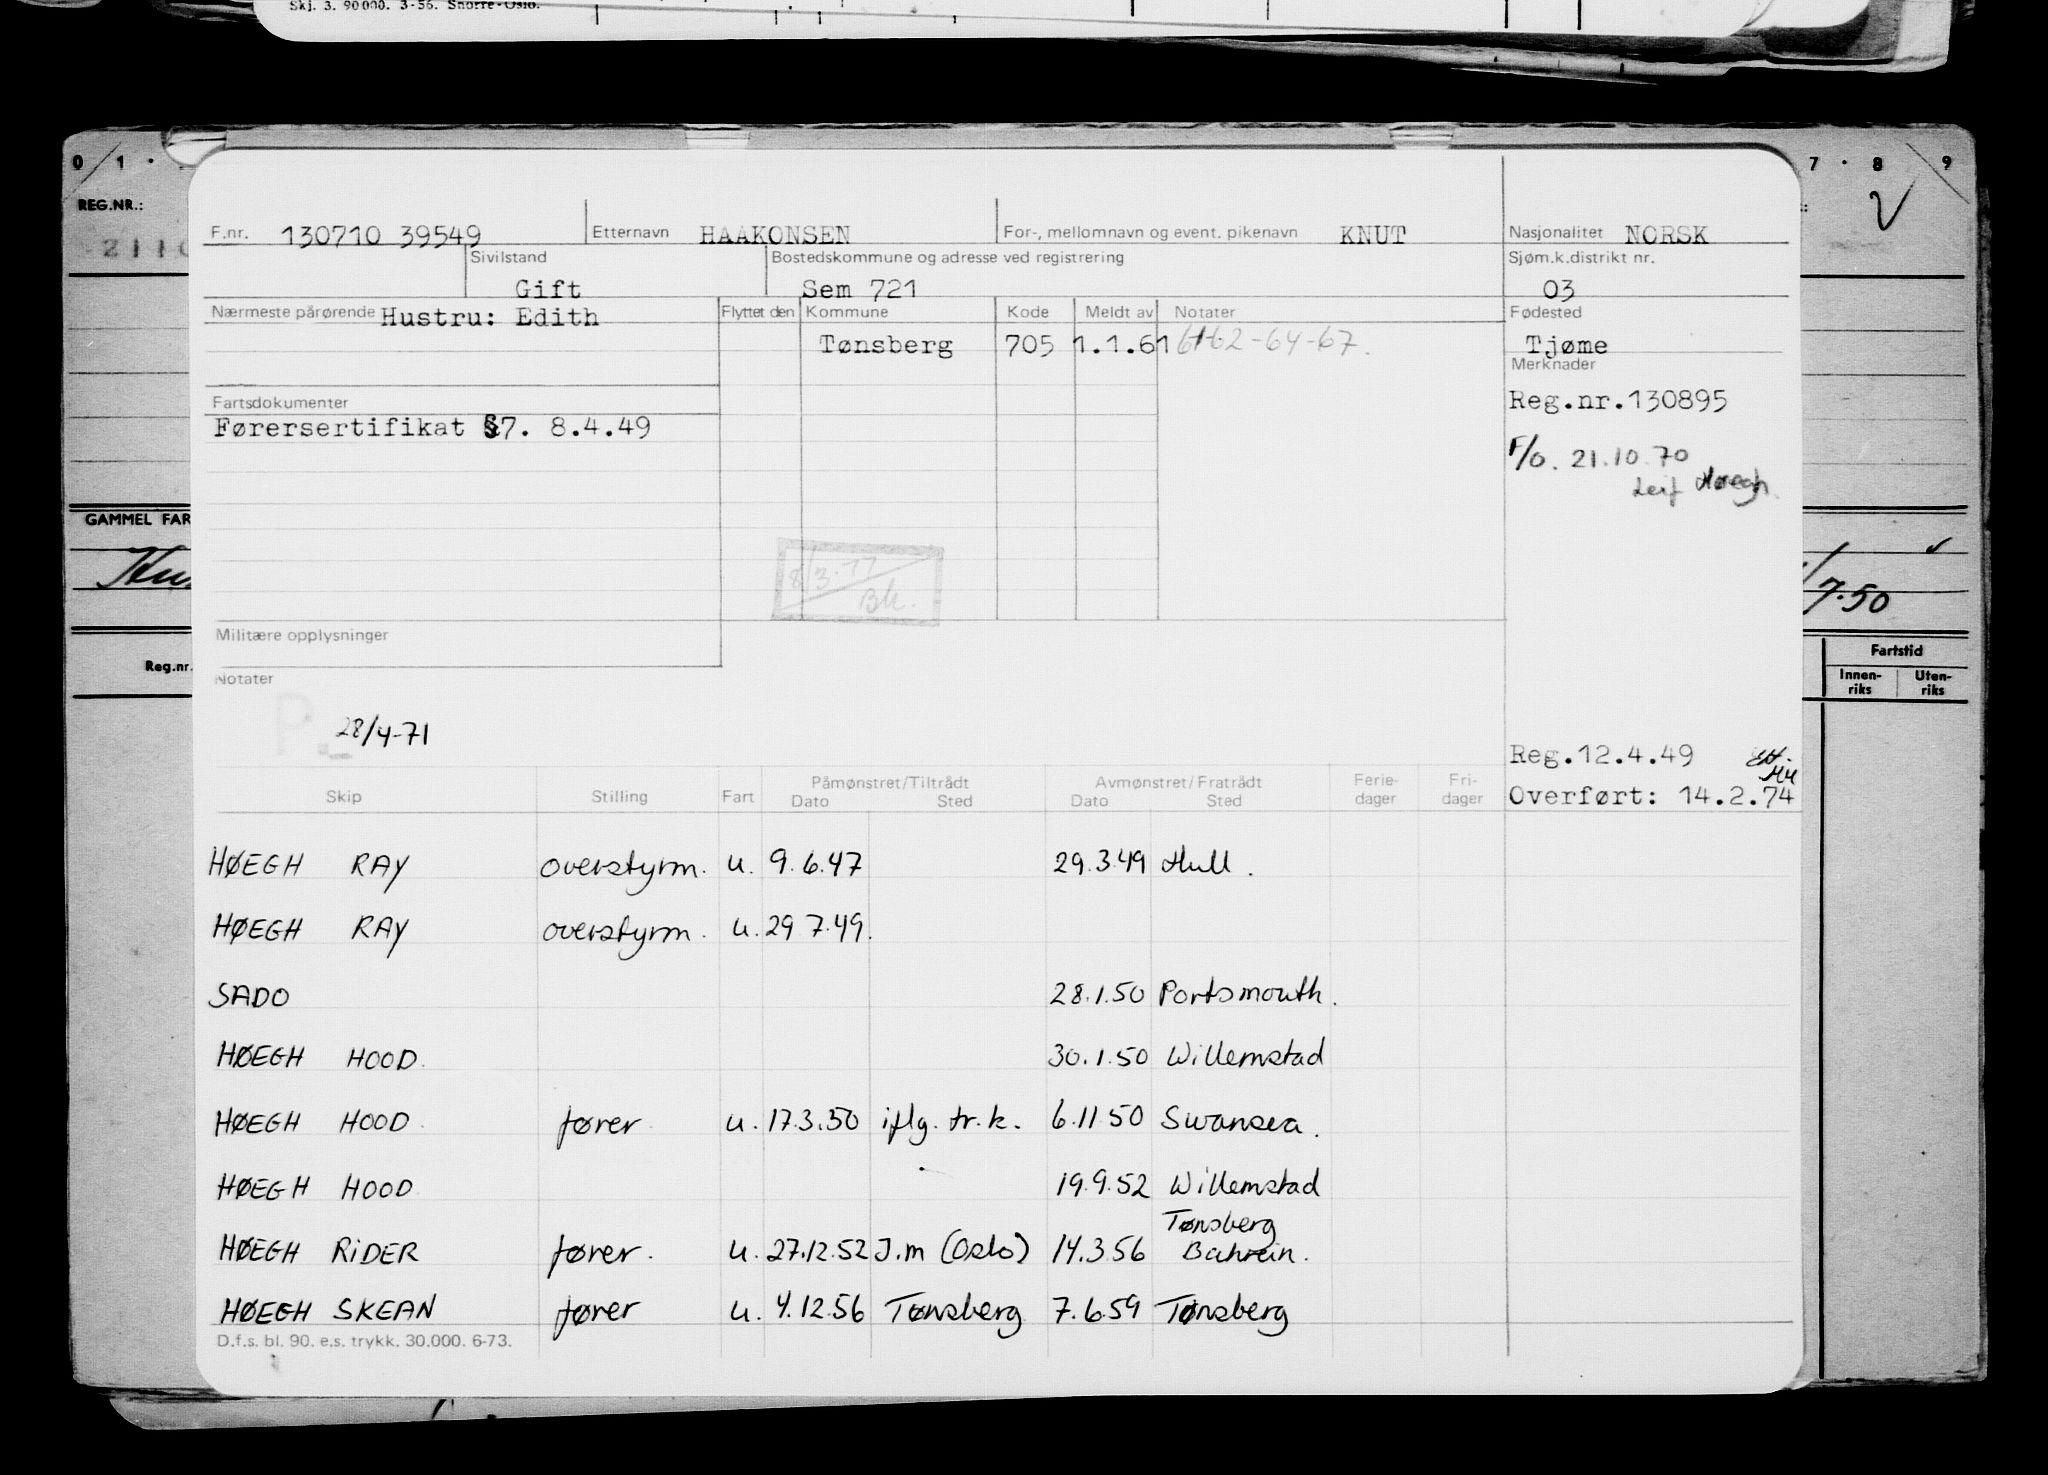 Skj. 3. 90000. 3-56. Snorre-Oslo.
0 1 · 7 · 8 9
REG.NR.:
F.nr. 130710 39549 Etternavn HAAKONSEN For-, mellomnavn og event. pikenavn KNUT Nasjonalitet NORSK
Sivilstand Bostedskommune og adresse ved registrering Sjøm.k.distrikt nr.
Gift Sem 721 03
Nærmeste pårørende Hustru: Edith Flyttet den Kommune Kode Meldt av Notater Fødested
Tønsberg 705 1.1.61 62-64-67. Tjøme
Merknader
Fartsdokumenter Reg.nr.130895
Førersertifikat §7. 8.4.49
F/O. 21.10.70
Leif Høegh
GAMMEL FAR
8/3-77
Bk.
7.50
Militære opplysninger
Reg.nr. Fartstid
Innen-riks Uten-riks
Notater
P.
28/4-71
Reg.12.4.49
Overført: 14.2.74
Skip Stilling Fart Påmønstret/Tiltrådt Avmønstret/Fratrådt Ferie-dager Fri-dager
Dato Sted Dato Sted
HØEGH RAY overstyrm. u. 9.6.47 29.3.49 Hull.
HØEGH RAY overstyrm. u. 29.7.49.
SADO 28.1.50 Portsmouth.
HØEGH HOOD. 30.1.50 Willemstad
HØEGH HOOD. fører u. 17.3.50 iflg. tr.k. 6.11.50 Swansea.
HØEGH HOOD 19.9.52 Willemstad
Tønsberg
HØEGH RIDER fører. u. 27.12.52 J.m (Oslo) 14.3.56 Bahrein.
HØEGH SKEAN fører u. 4.12.56 Tønsberg 7.6.59 Tønsberg
D.f.s. bl. 90. e.s. trykk. 30.000. 6-73.